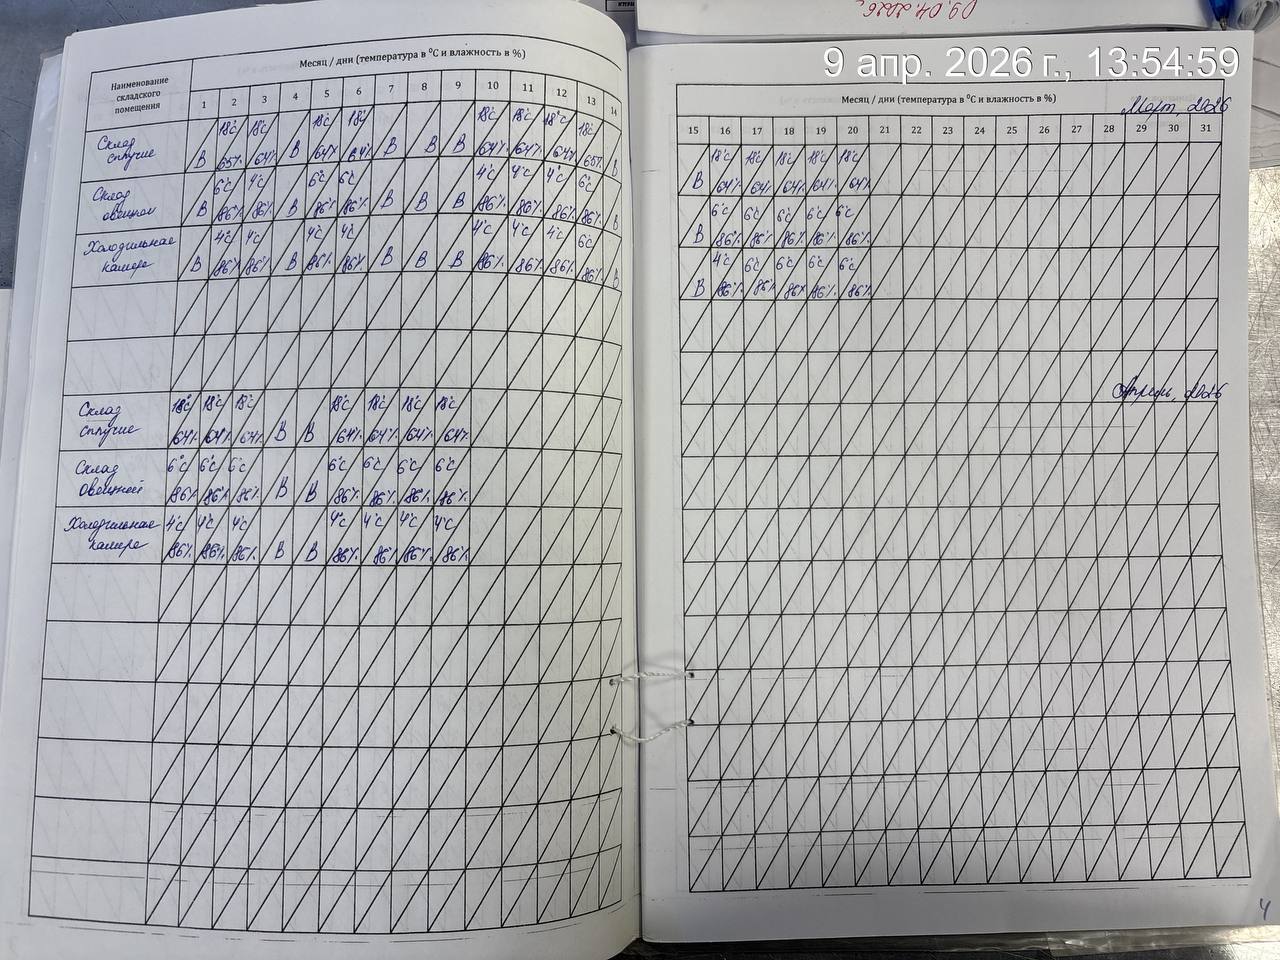 09.04.2026г
9 апр. 2026 г., 13:54:59
Наименование
складского
помещения
Месяц / дни (температура в ⁰С и влажность в %)
1 2 3 4 5 6 7 8 9 10 11 12 13 14
Склад
сыпучие
18°с 18°с 18°с 18°с 18°с 18°с 18°с 18°с
В 65% 64% В 64% 64% В В В 64% 64% 64% 65% В
Склад
овощной
6°с 4°с 6°с 6°с 4°с 4°с 4°с 6°с
В 86% 86% В 86% 86% В В В 86% 86% 86% 86% В
Холодильная
камера
4°с 4°с 4°с 4°с 4°с 4°с 4°с 6°с
В 86% 86% В 86% 86% В В В 86% 86% 86% 86% В
Склад
сыпучие
18°с 18°с 18°с 18°с 18°с 18°с 18°с
64% 64% 64% В В 64% 64% 64% 64%
Склад
Овощной
6°с 6°с 6°с 6°с 6°с 6°с 6°с
86% 86% 86% В В 86% 86% 86% 86%
Холодильная
камера
4°с 4°с 4°с 4°с 4°с 4°с 4°с
86% 86% 86% В В 86% 86% 86% 86%
Месяц / дни (температура в ⁰С и влажность в %)
Март, 2026
15 16 17 18 19 20 21 22 23 24 25 26 27 28 29 30 31
18°с 18°с 18°с 18°с 18°с
В 64% 64% 64% 64% 64%
6°с 6°с 6°с 6°с 6°с
В 86% 86% 86% 86% 86%
4°с 6°с 6°с 6°с 6°с
В 86% 86% 86% 86% 86%
Апрель, 2026
4